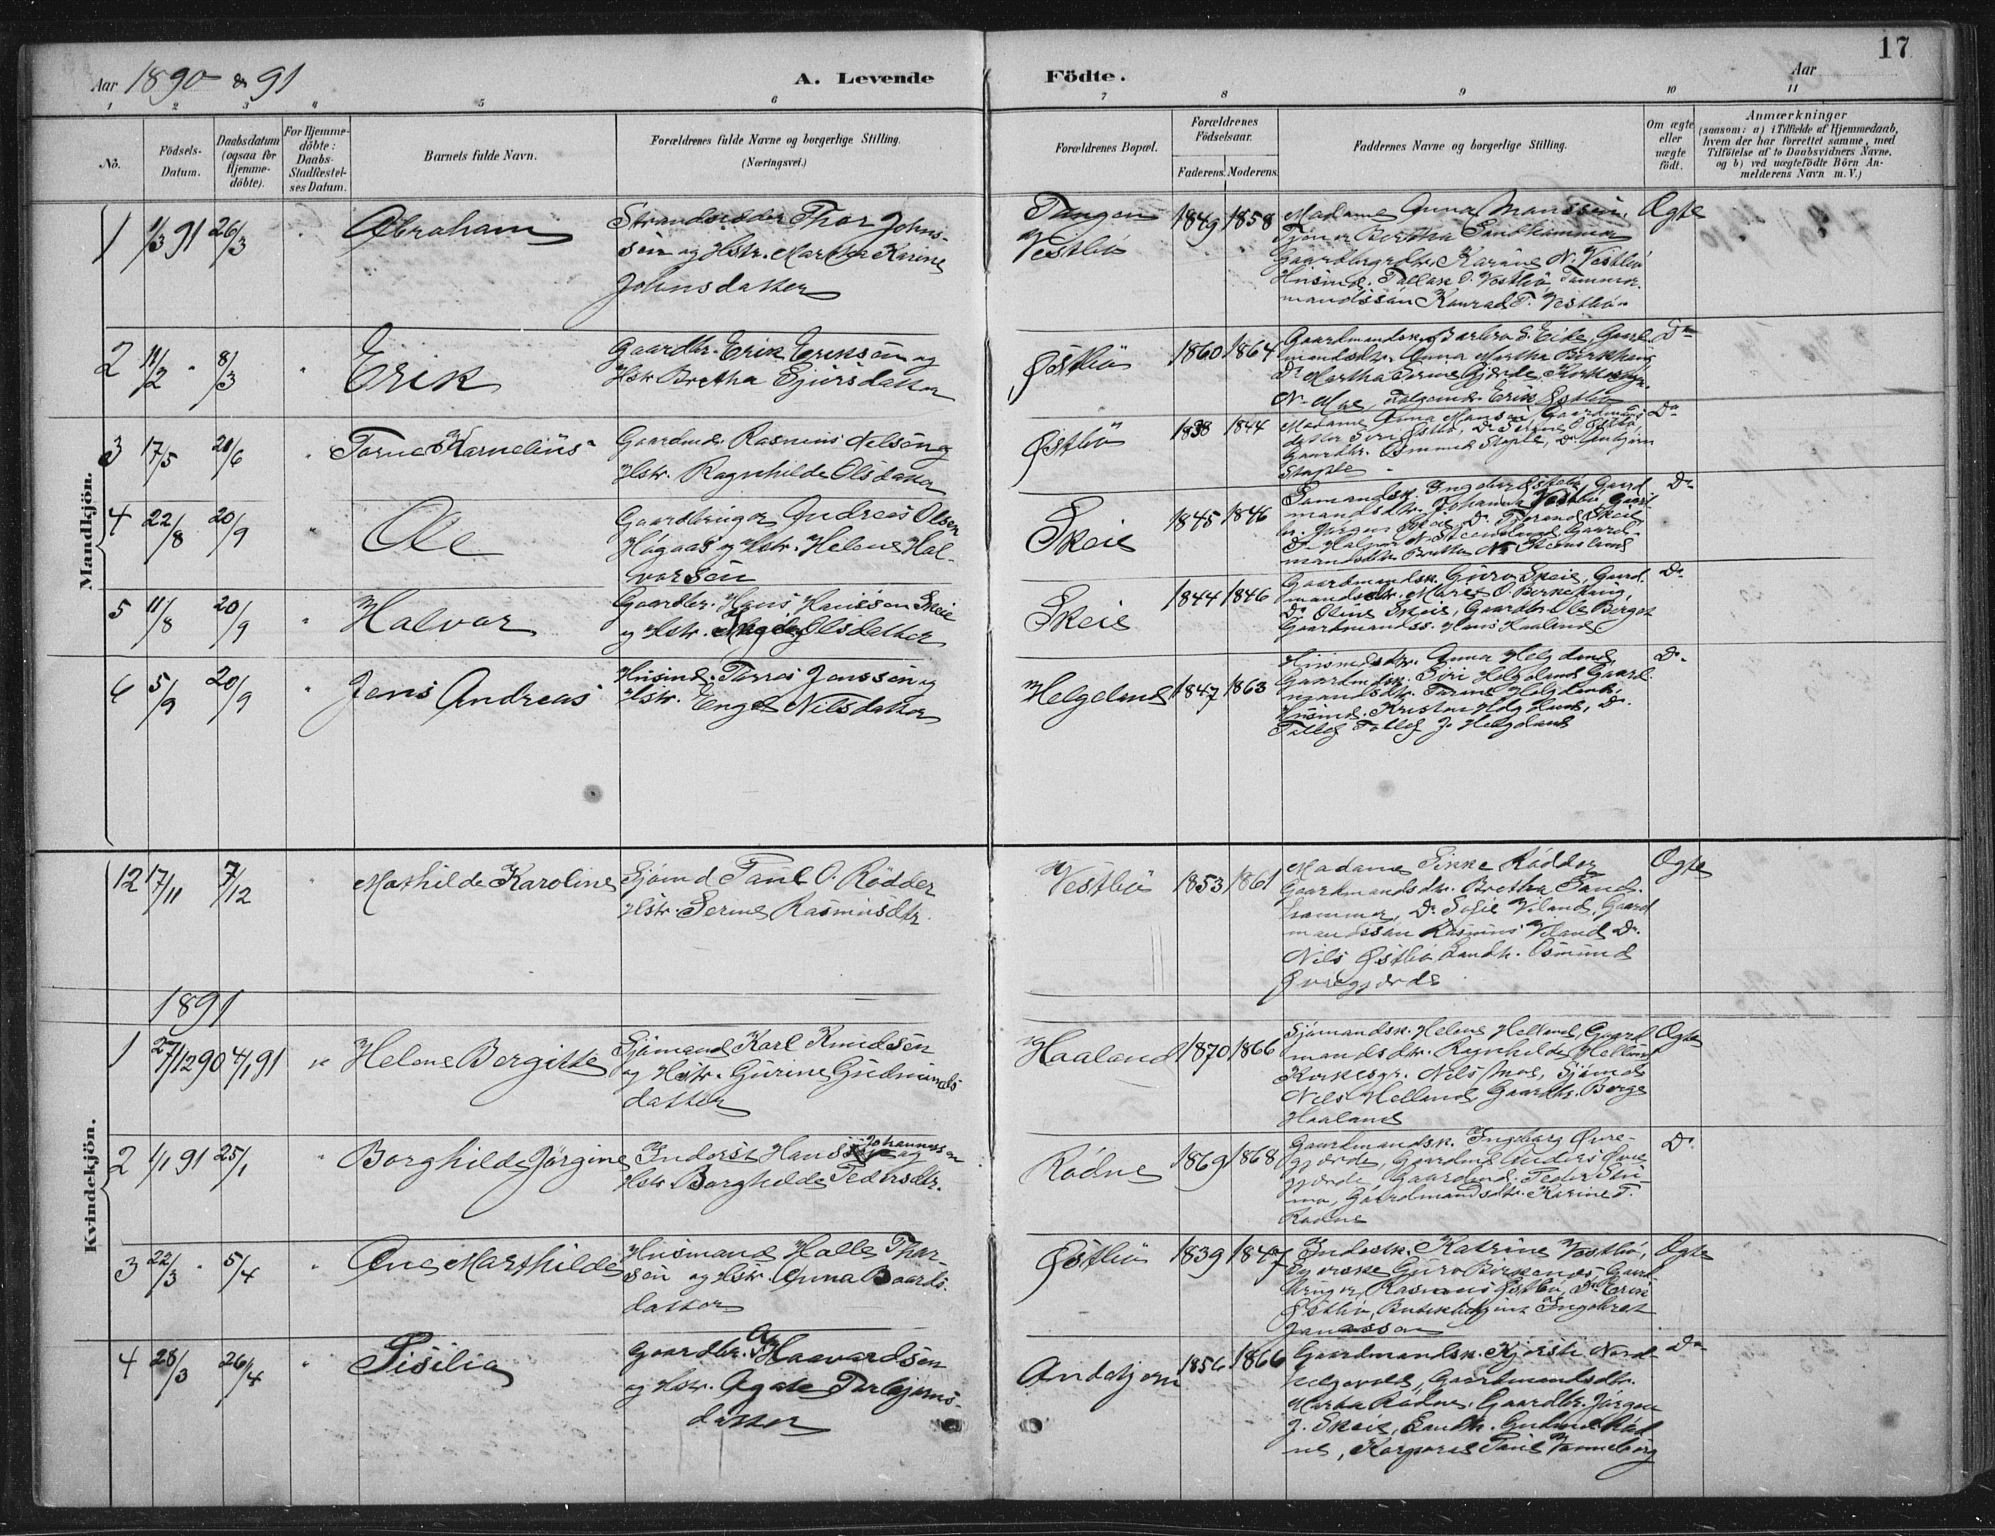 17
Aar 1890 & 91 A. Levende Födte. Aar
1 2 3 4 5 6 7 8 9 10 11
No. Födsels-Datum. Daabsdatum (ogsaa for Hjemme-döbte). For Hjemme-döbte: Daabs-Stadfæstel-ses Datum. Barnets fulde Navn. Forældrenes fulde Navne og borgerlige Stilling. (Næringsvei.) Forældrenes Bopæl. Forældrenes Födselsaar. Faderens. Moderens. Faddernes Navne og borgerlige Stilling. Om ægte eller uægte födt. Anmærkninger (saasom: a) i Tilfælde af Hjemmedaab, hvem der har forrettet samme, med Tilföielse af to Daabsvidners Navne. og b) ved uægtefödte Börn An-melderens Navn m. V.)
Mandkjön.
1 1/3 91 26/3 " Abraham
Strandsidder Thor Johns-
sen og Hstr. Martha Karine
Johnsdatter
Tangen
Vestbø
1849 1858
Madame Anna Manssen,
Bertha Sandhammer
Karine N. Vestbø
Husmd. Tallak O. Vestbø, Tømmer-
mandssøn Konrad T. Vestbø
Ægte
2 11/2 " 8/3 " Erik
Gaardbr. Erik Eriksen og
Hstr. Bretha Sjursdatter
Østbø
1860 1864
Gaardmandsk. Barbro S. Eide, Gaard-
mandsdtr. Anna Martha Birkhaug
Do Martha Serine Gjerde, Kirkesgr.
N. Moe, Erik Østbø
Do
3 17/5 21/6 " Tarne Kornelius
Gaardmd. Rasmus Nilsen og
Hstr. Ragnhilde Olsdatter
Østbø
1838 1844
Madame Anna Mansen, Gaardmands-
datter Siri Østbø, Do Serine O. Østbø,
Gaardbr. Osmund Stople, Do
Stople
Do
4 22/8 20/9 " Ole
Gaardbruger Andreas Olsen
Høgaas og Hstr. Helene Hal-
vorsen
Skeie
1845 1846
Ingebor Østbø, Gaard-
mandsdtr. Johanna Vestbø, Gaard-
br. Jørgen Skeie, Do Tjerand Skeie,
Do Halvor N. Steensland, Gaard-
mandsdtr. Bretha N. Steensland
Do
5 11/8 20/9 " Halvor
Gaardbr. Hans Hansen Skeie
og Hstr. Ingebor Olsdatter
Skeie
1844 1846
Gaardmandsk. Guro Skeie, Gaard-
mandsdtr. Maret O. Birkehaug,
Do Oline Skeie, Gaardbr. Ole Berget
Gaardmandss. Hans Haaland
Do
6 5/9 20/9 " Jens Andreas
Husmd. Torres Jenssen og
Hstr. Engel Nilsdatter
Helgeland
1847 1863
Husmdsdtr. Anna Helgeland,
Gaardmdsk. Siri Helgeland, Gaard-
mandsdtr. Torine Helgeland,
Husmd. Kristen Helgeland, Do
Tallef Tallef J. Helgeland
Do
Kvindekjön.
12 17/11 7/12 " Mathilde Karoline
Sjømd Paul O. Rødder
Hstr. Serine Rasmusdtr.
Vestbø
1853 1861
Madame Sikke Rødder
Gaardmandsdtr. Bretha Sand-
hammer, Do Sofie Viland, Gaard-
mandssøn Rasmus Viland, Do
Nils Østbø, Landh. Osmund
Øvregjerde
Ægte
1891
1 27/12 90 4/1 91 " Helene Bergitte
Sjømand Karl Knudsen
og Hstr. Gurine Gudmunds-
datter
Haaland
1870 1866
Sjømandsk. Helene Helland, Gaard-
mandsdtr. Ragnhilde Helland
Kirkesgr. Nils Moe, Sjømd
Nils Helland, Gaardbr. Børge
Haaland
Ægte
2 1/1 91 25/1 " Borghilde Jørgine
Inderst Hans Johannessen og
Hstr. Borghilde Pedersdtr.
Rødne
1869 1868
Gaardmandsk. Ingeborg Øvre-
gjerde, Gaardmd. Anders Øvre
gjerde, Gaardmd. Peder Stu-
mo, Gaardmandsdtr. Karine P.
Rødne
Do
3 22/3 " 5/4 " Ane Marthilde
Husmand Halle Thor-
sen og Hstr. Anna Baards-
datter
Østbø
1839 1847
Inderstk. Katrine Vestbø,
Syerske Guro Birkenes, Gaard-
bruger Rasmus Østbø, Do Erik
Østbø, Ingebret
Jonassen
Ægte
4 28/3 26/4 " Sisilia
Gaardbr. Haavardsen
og Hstr. Agate Torbjørns-
datter
1856 1866
Gaardmandsk. Kjersti Nord-
helgevold, Gaardmandsdtr.
Marta Rødne, Gaardbr. Jørgen
J. Skeie, Landh. Gudmd Rød-
ne, Korporal Paul Vanneberg
Do